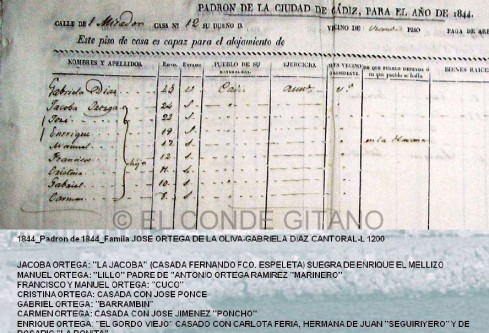 PADRON DE LA CIUDAD DE CÁDIZ, PARA EL AÑO DE 1844.
CALLE DE l Mirador CASA Nº 12 SU DUEÑO D. VECINO DE PISO PAGA DE
Este piso de casa es capaz para el alojamiento de
NOMBRES Y APELLIDOS. EDAD. ESTADO PUEBLO DE SU NATURALEZA. EJERCICIO. BIENES RAICES
Gabriela Diaz
Jacoba Ortega 24 S.
José
Enrrique 19
Manuel 17 en la Havana
Francisco 12 hijos
Cristina
Gabriel 10
Carmen
© EL CONDE GITANO
1844_Padron de 1844_Famila JOSÉ ORTEGA DE LA OLIVA-GABRIELA DÍAZ CANTORAL-L 1200
JACOBA ORTEGA: "LA JACOBA" (CASADA FERNANDO FCO. ESPELETA) SUEGRA DE ENRIQUE EL MELLIZO
MANUEL ORTEGA: "LILLO" PADRE DE "ANTONIO ORTEGA RAMIREZ "MARINERO"
FRANCISCO Y MANUEL ORTEGA: "CUCO"
CRISTINA ORTEGA: CASADA CON JOSE PONCE
GABRIEL ORTEGA: "BARRAMBIN"
CARMEN ORTEGA: CASADA CON JOSE JIMENEZ "PONCHO"
ENRIQUE ORTEGA: "EL GORDO VIEJO" CASADO CON CARLOTA FERIA, HERMANA DE JUAN "SEGUIRIYERO" Y DE
ROSARIO "LA BONITA"